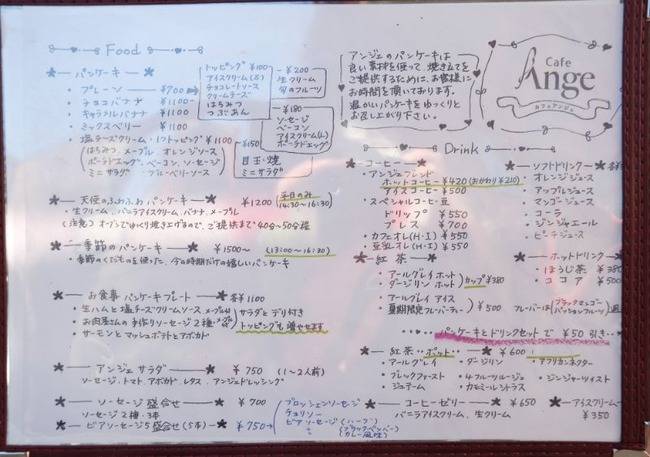 Food
パンケーキ
・プレーン ¥700
・チョコバナナ ¥1100
・キャラメルバナナ ¥1100
・ミックスベリー ¥1100
・塩チーズクリーム・1つトッピング ¥1100
(はちみつ、メープル、オレンジソース
ポーチドエッグ、ベーコン、ソーセージ
ミニサラダ・ブルーベリーソース)
トッピング ¥100
アイスクリーム(S)
チョコレートソース
クリームチーズ
はちみつ
つぶあん
¥200
生クリーム
旬のフルーツ
¥180
ソーセージ
ベーコン
アイスクリーム(L)
ポーチドエッグ
¥150
目玉焼
ミニサラダ
天使のふわふわパンケーキ ¥1200 (平日のみ 14:30〜16:30)
・生クリーム・バニラアイスクリーム、バナナ、メープル
(注意) オーブンでゆっくり焼き上げるので、ご提供まで40分〜50分程
季節のパンケーキ ¥1500〜 (13:00〜16:30)
・季節のくだものを使った、今の時期だけの嬉しいパンケーキ
お食事パンケーキプレート 各¥1100
・生ハムと塩チーズクリームソース、メープル付
・お肉屋さんの手作りソーセージ2種
・サーモンとマッシュポテトとアボカド
サラダとデリ付き
トッピングも増やせます
アンジェサラダ ¥750 (1〜2人前)
ソーセージ、トマト、アボカド、レタス、アンジェドレッシング
ソーセージ盛合せ ¥700
ソーセージ2種・3本
ビアソーセージ5盛合せ(5本) ¥750
ブロッシェンソーセージ
チョリソー
ビアソーセージ(ハーブ)
(ブラックペッパー)
(カレー風味)
アンジェのパンケーキは
良い素材を使って、焼き立てを
ご提供するために、お客様に
お時間を頂いております。
温かいパンケーキをゆっくりと
お召し上がり下さい。
Cafe
Ange
カフェアンジェ
Drink
コーヒー
・アンジェブレンド
ホットコーヒー ¥420 (おかわり¥210)
アイスコーヒー ¥500
・スペシャルコーヒー豆
ドリップ ¥550
プレス ¥700
・カフェオレ(H・I) ¥550
・豆乳オレ(H・I) ¥550
ソフトドリンク
・オレンジジュース
・アップルジュース
・マンゴージュース
・コーラ
・ジンジャエール
・ピーチジュース
ホットドリンク
・ほうじ茶 ¥380
・ココア ¥500
紅茶
・アールグレイホット
・ダージリンホット カップ ¥380
・アールグレイアイス
・夏期限定フレーバーティー ¥500
フレーバーは(ブラックマンゴー
パッションフルーツ)
パンケーキとドリンクセットで ¥50引き
紅茶 ポット ¥600
・アールグレイ ・ダージリン ・アフリカンネクター
・ブレックファースト ・4フルーツルージュ ・ジンジャーツイスト
・ジュテーム ・カモミールシトラス
コーヒーゼリー ¥650
バニラアイスクリーム、生クリーム
アイスクリーム
¥350